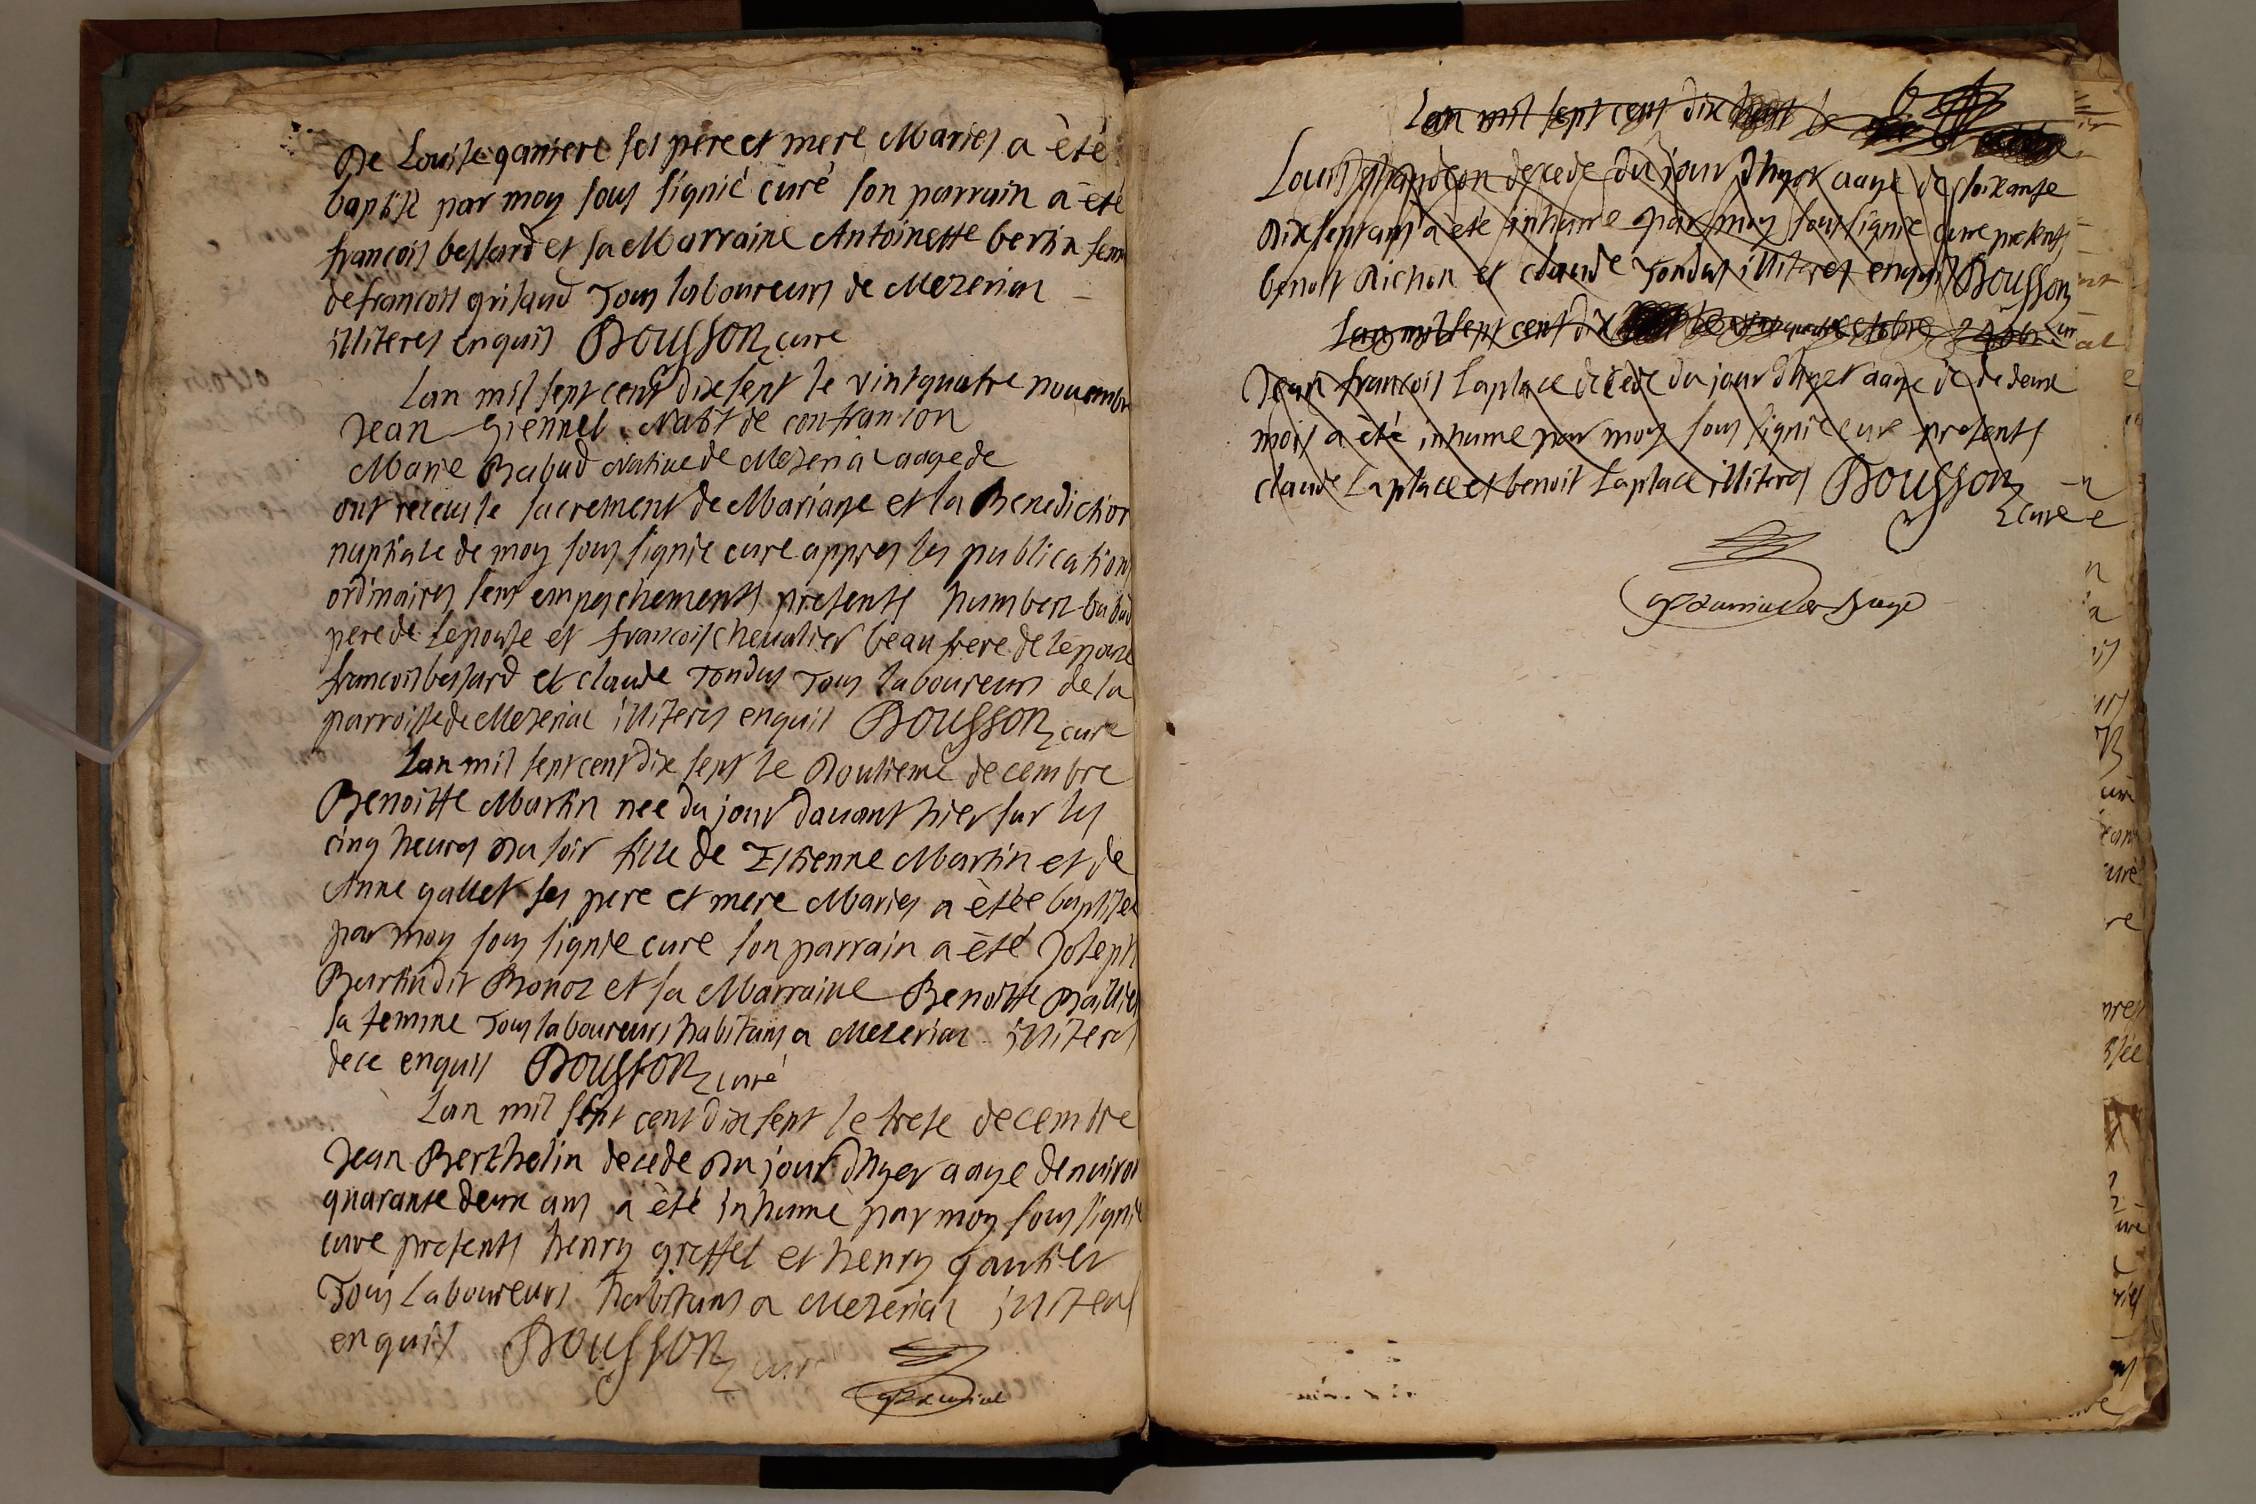 De Louise ganiere ses pere et mere Maries a èté
baptisé par moy sous signié curé son parrain a èté
francois bessard et sa Marraine Antoinette bertin fem
de francois grisaud Tous laboureurs de Mezeriac
illiteres enquis Dousson curé
Lan mil sept cent dix sept le vintquatre nouembre
Jean Natif de confrancon
Marie Babad Natiue de Mezeriac aagé de
ont receus le sacrement de Mariage et la Benediction
nuptiale de moy sous signié curé appres les publications
ordinaires sens empechements presents humbert babad
pere de lepouse et francois cheualier beau frere de lepouse
francois bessard et claude Tondus Tous laboureurs de la
parroisse de Mezeriac illiteres enquis Dousson curé
Lan mil sept cent dix sept le Doutieme decembre
Benoitte Martin née du jour dauant hier sur les
cinq heures du soir fille de Estienne Martin et de
Anne gallet ses pere et mere Maries a ètée baptisée
par moy sous signié curé son parrain a èté Joseph
Bertin dit Bonoz et sa Marraine Benoitte
sa femme Tous laboureurs habitans a Mezeriac illiteres
de ce enquis Dousson curé
Lan mil sept cent dix sept le trese decembre
Jean Berthelin decede du jour dhyer aage denuiron
quarante deux ans a èté inhumé par moy sous signié
curé presents henry greffet et henry gautier
Tous laboureurs habitans a Mezeriac illiteres
enquis Dousson curé
Lan mil sept cent dix
Louis decede du jour dhyer aagé de soixante
Dix sept ans a èté inhumé par moy sous signié curé presents
benoit Michon et claude Tondus illiteres enquis Dousson
Lan mil sept cent dix curé
Jean francois Laplace decede du jour dhyer aagé de de deux
mois a èté inhumé par moy sous signié curé presents
claude Laplace et benoit Laplace illiteres Dousson
curé